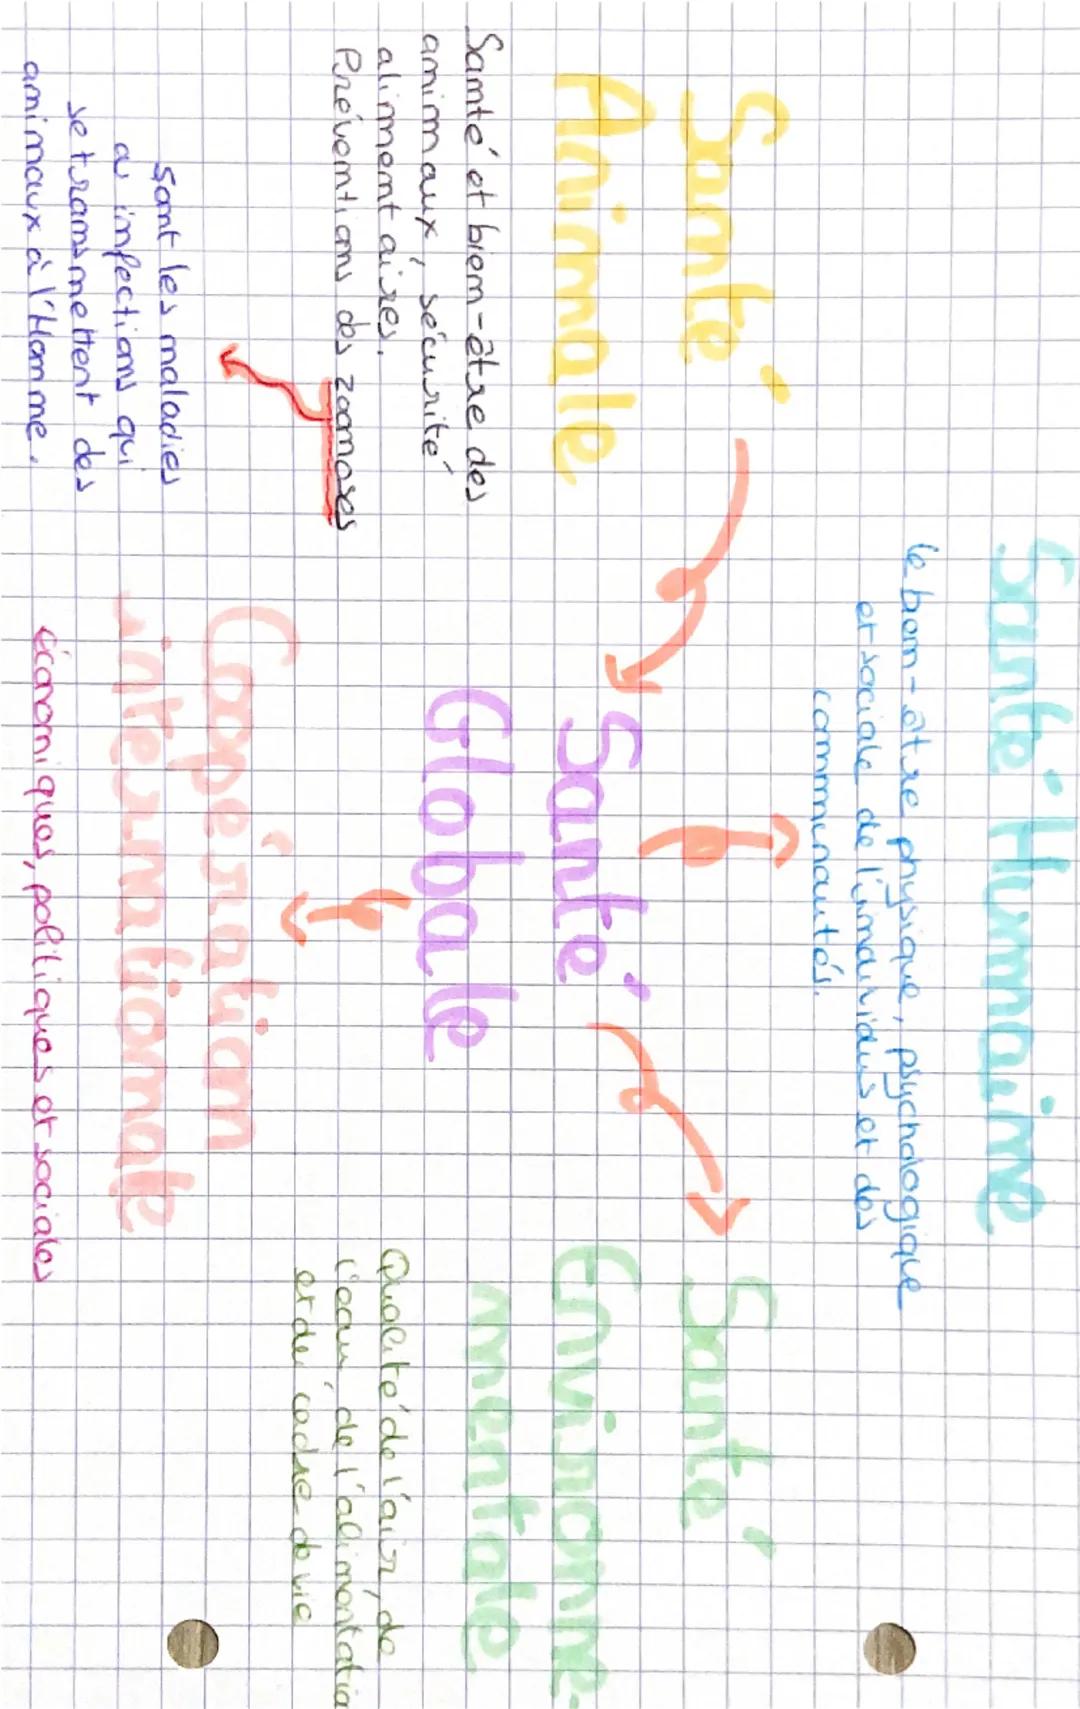 Santé Humaine
le bien-être physique, psychologique
et sociale de l'individus et des
communautés.
Santé
Animale
Santé et bien-être des
animaux, sécurité
alimentaires.
Préventions des zoonoses
Sont les maladies
ou infections qui
se transmettent des
animaux à l'Homme.
Santé
Globale
Santé
Environne-
mentale
Qualité de l'air, de
l'eau, de l'alimentation
et du cadre de vie
Coopération
internationale
économiques, politiques et sociales